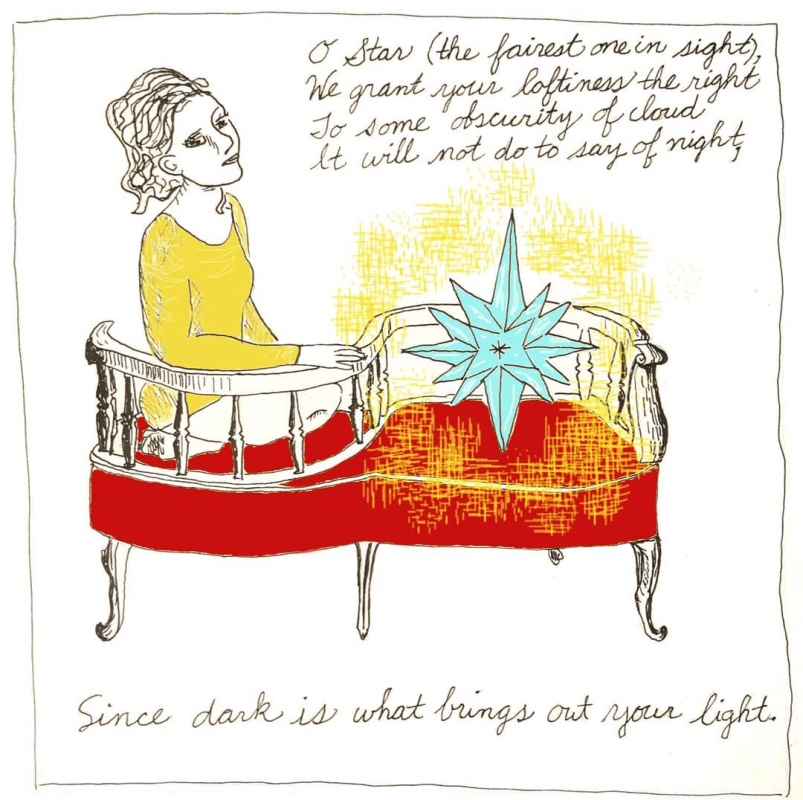 O Star (the fairest one in sight),
We grant your loftiness the right
To some obscurity of cloud
It will not do to say of night,
Since dark is what brings out your light.